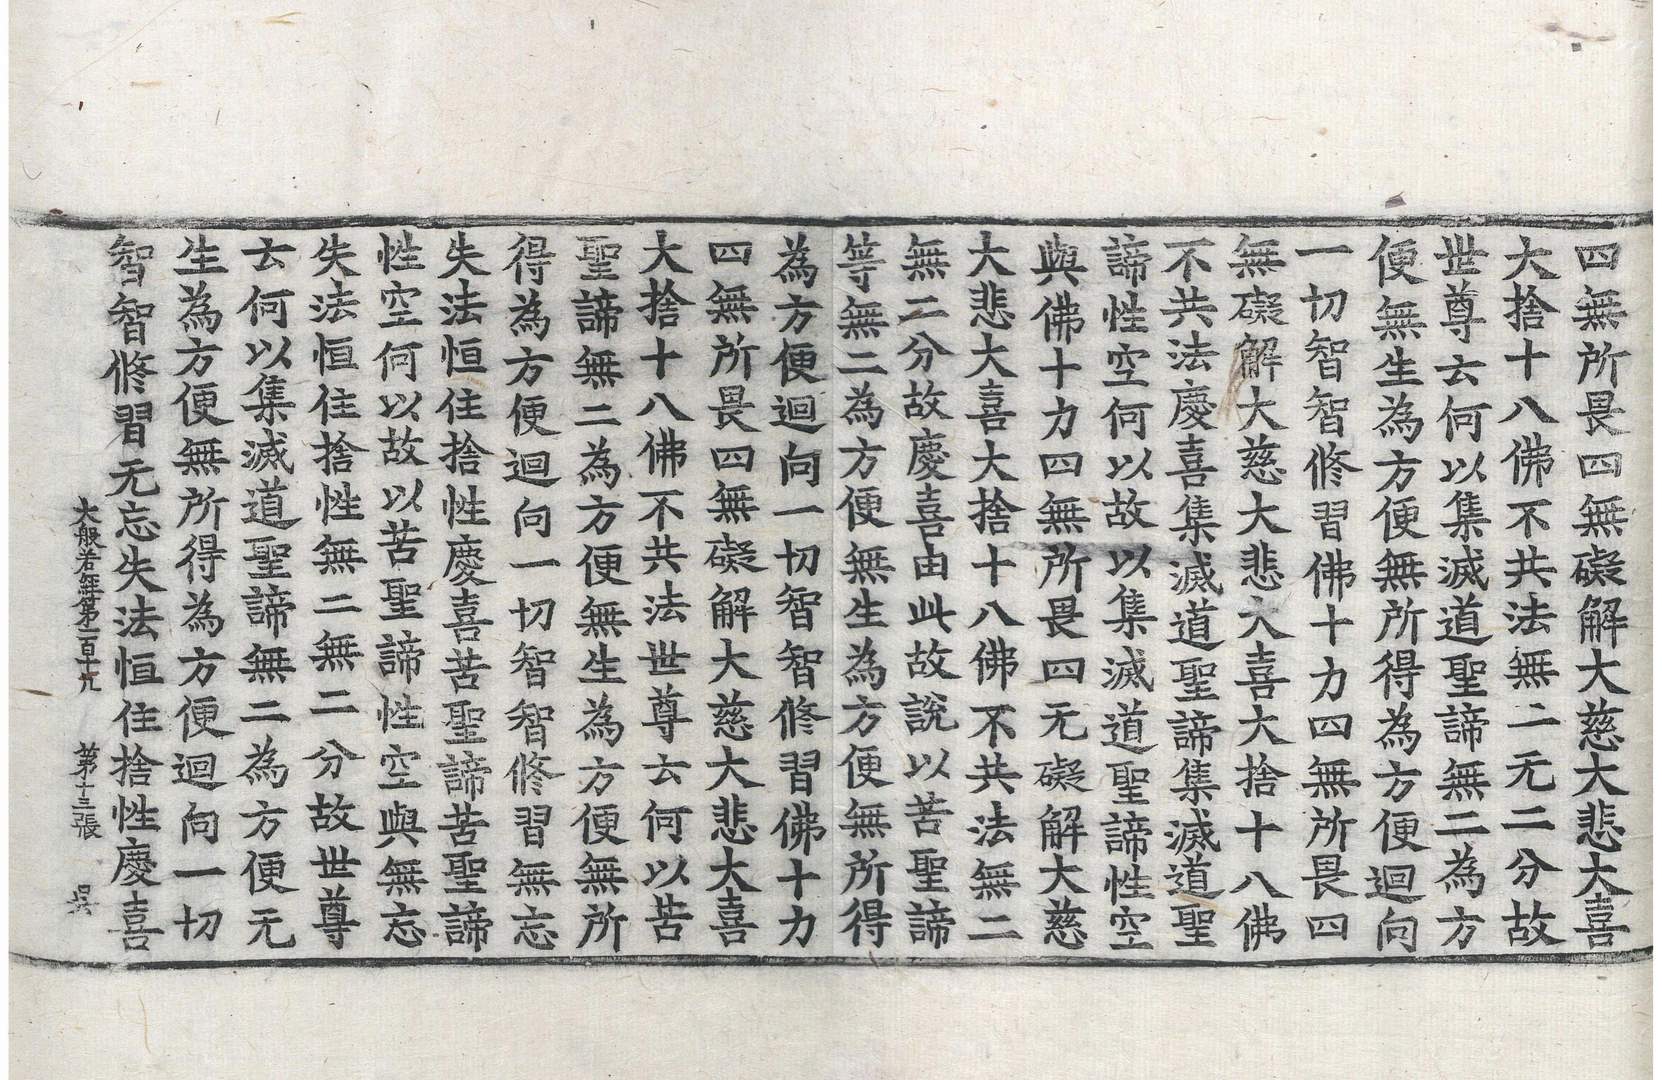 四無所畏四無礙解大慈大悲大喜
大捨十八佛不共法無二无二分故
世尊云何以集滅道聖諦無二為方
便無生為方便無所得為方便迴向
一切智智修習佛十力四無所畏四
無礙解大慈大悲大喜大捨十八佛
不共法慶喜集滅道聖諦集滅道聖
諦性空何以故以集滅道聖諦性空
與佛十力四無所畏四无礙解大慈
大悲大喜大捨十八佛不共法無二
無二分故慶喜由此故說以苦聖諦
等無二為方便無生為方便無所得
為方便迴向一切智智修習佛十力
四無所畏四無礙解大慈大悲大喜
大捨十八佛不共法世尊云何以苦
聖諦無二為方便無生為方便無所
得為方便迴向一切智智修習無忘
失法恒住捨性慶喜苦聖諦苦聖諦
性空何以故以苦聖諦性空與無忘
失法恒住捨性無二無二分故世尊
云何以集滅道聖諦無二為方便无
生為方便無所得為方便迴向一切
智智修習无忘失法恒住捨性慶喜
大般若經第一百十九　第十三張　吳